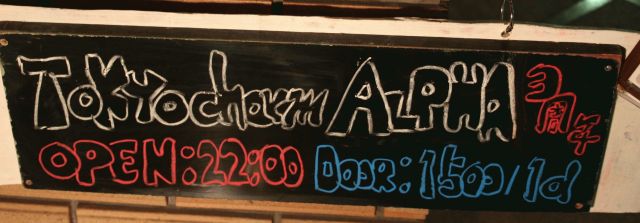 TOKYOcharm ALPHA 3周年
OPEN:22:00 DOOR:1500/1d